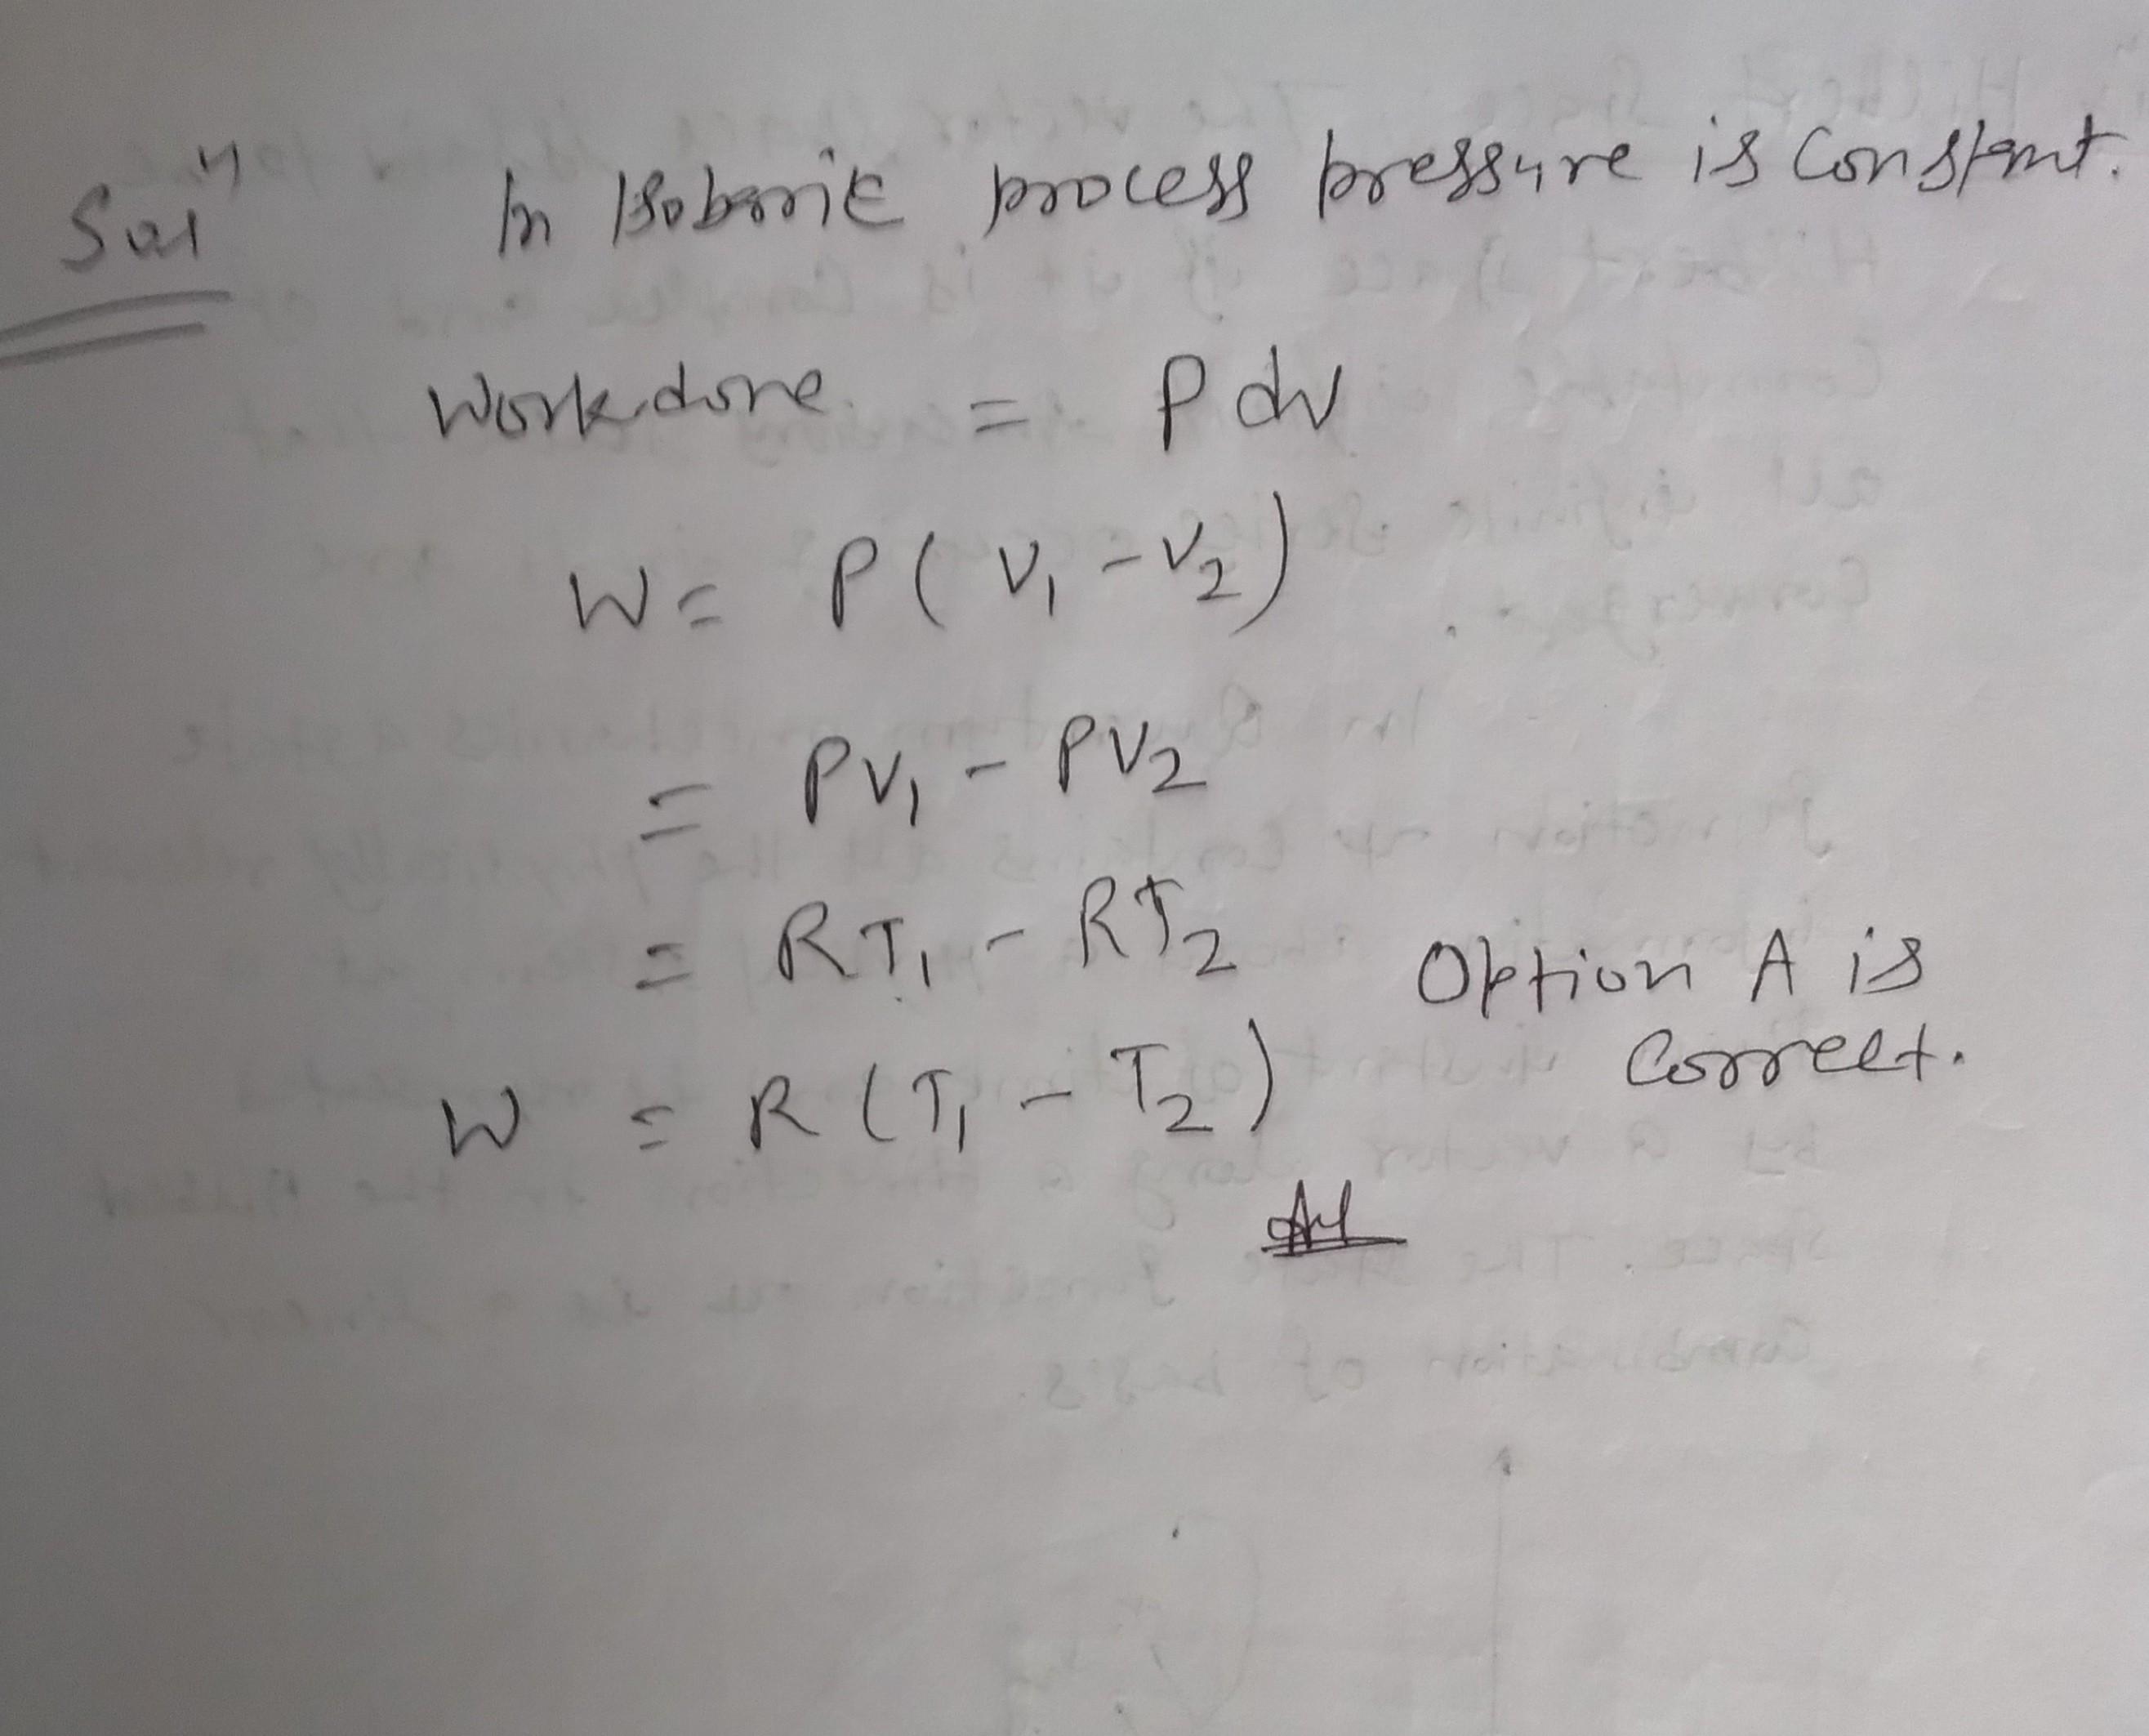 Solⁿ In Isobaric process pressure is Constant.
Workdone = P dv
W = P ( V₁ - V₂ )
= PV₁ - PV₂
= RT₁ - RT₂
Option A is
Correct.
W = R (T₁ - T₂ )